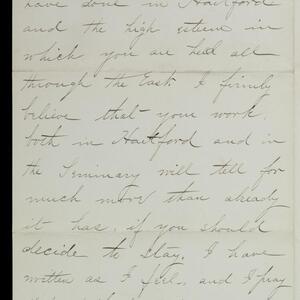 have done in Hartford
and the high esteem in
which you are held all
through the East. I firmly
believe that your work,
both in Hartford and in
the Seminary will tell for
much more than already
it has, if you should
decide to stay. I have
written as I feel, and I pray